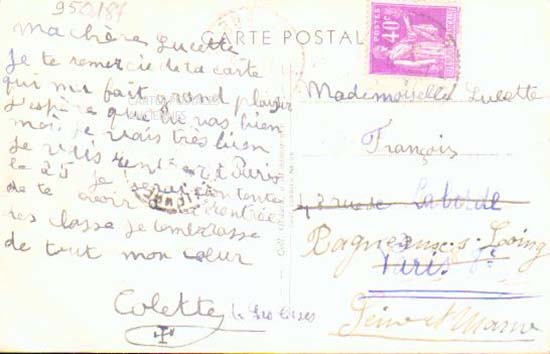 950187
CARTE POSTALE
POSTES
40c
Ma chère Lucette
je te remercie de ta carte
qui me fait grand plaisir
J'espère que tu vas bien
moi je vais très bien
je suis rent à Paris
le 25 je serai contente
de te revoir à la rentrée
des classe je t'embrasse
de tout mon cœur
Colette
Mademoiselle Lucette
François
48 rue de Laborde
Bagneaux s. Loing
Paris 8e
Seine et Marne